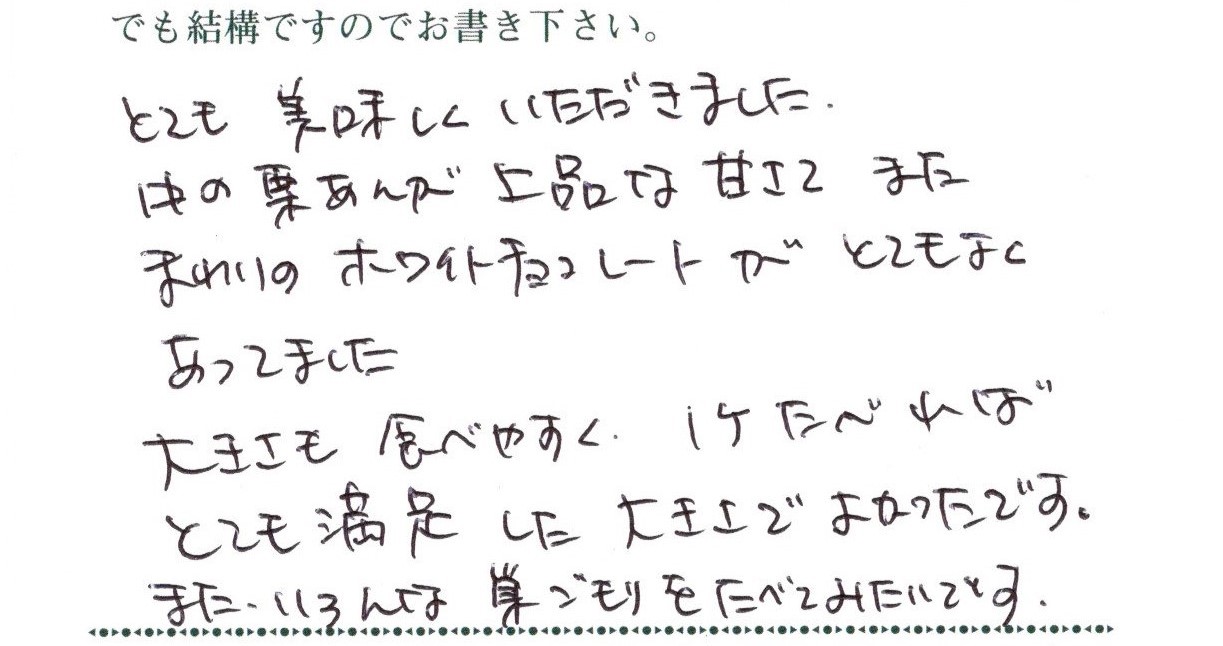 でも結構ですのでお書き下さい。
とても 美味しく いただきました.
中の 栗あんが 上品な 甘さで また
まわりの ホワイトチョコレートが とてもよく
あってました
大きさも 食べやすく. 1ケ たべれば
とても 満足 した 大きさで よかったです。
また. いろんな 巣ごもりを たべてみたいです.